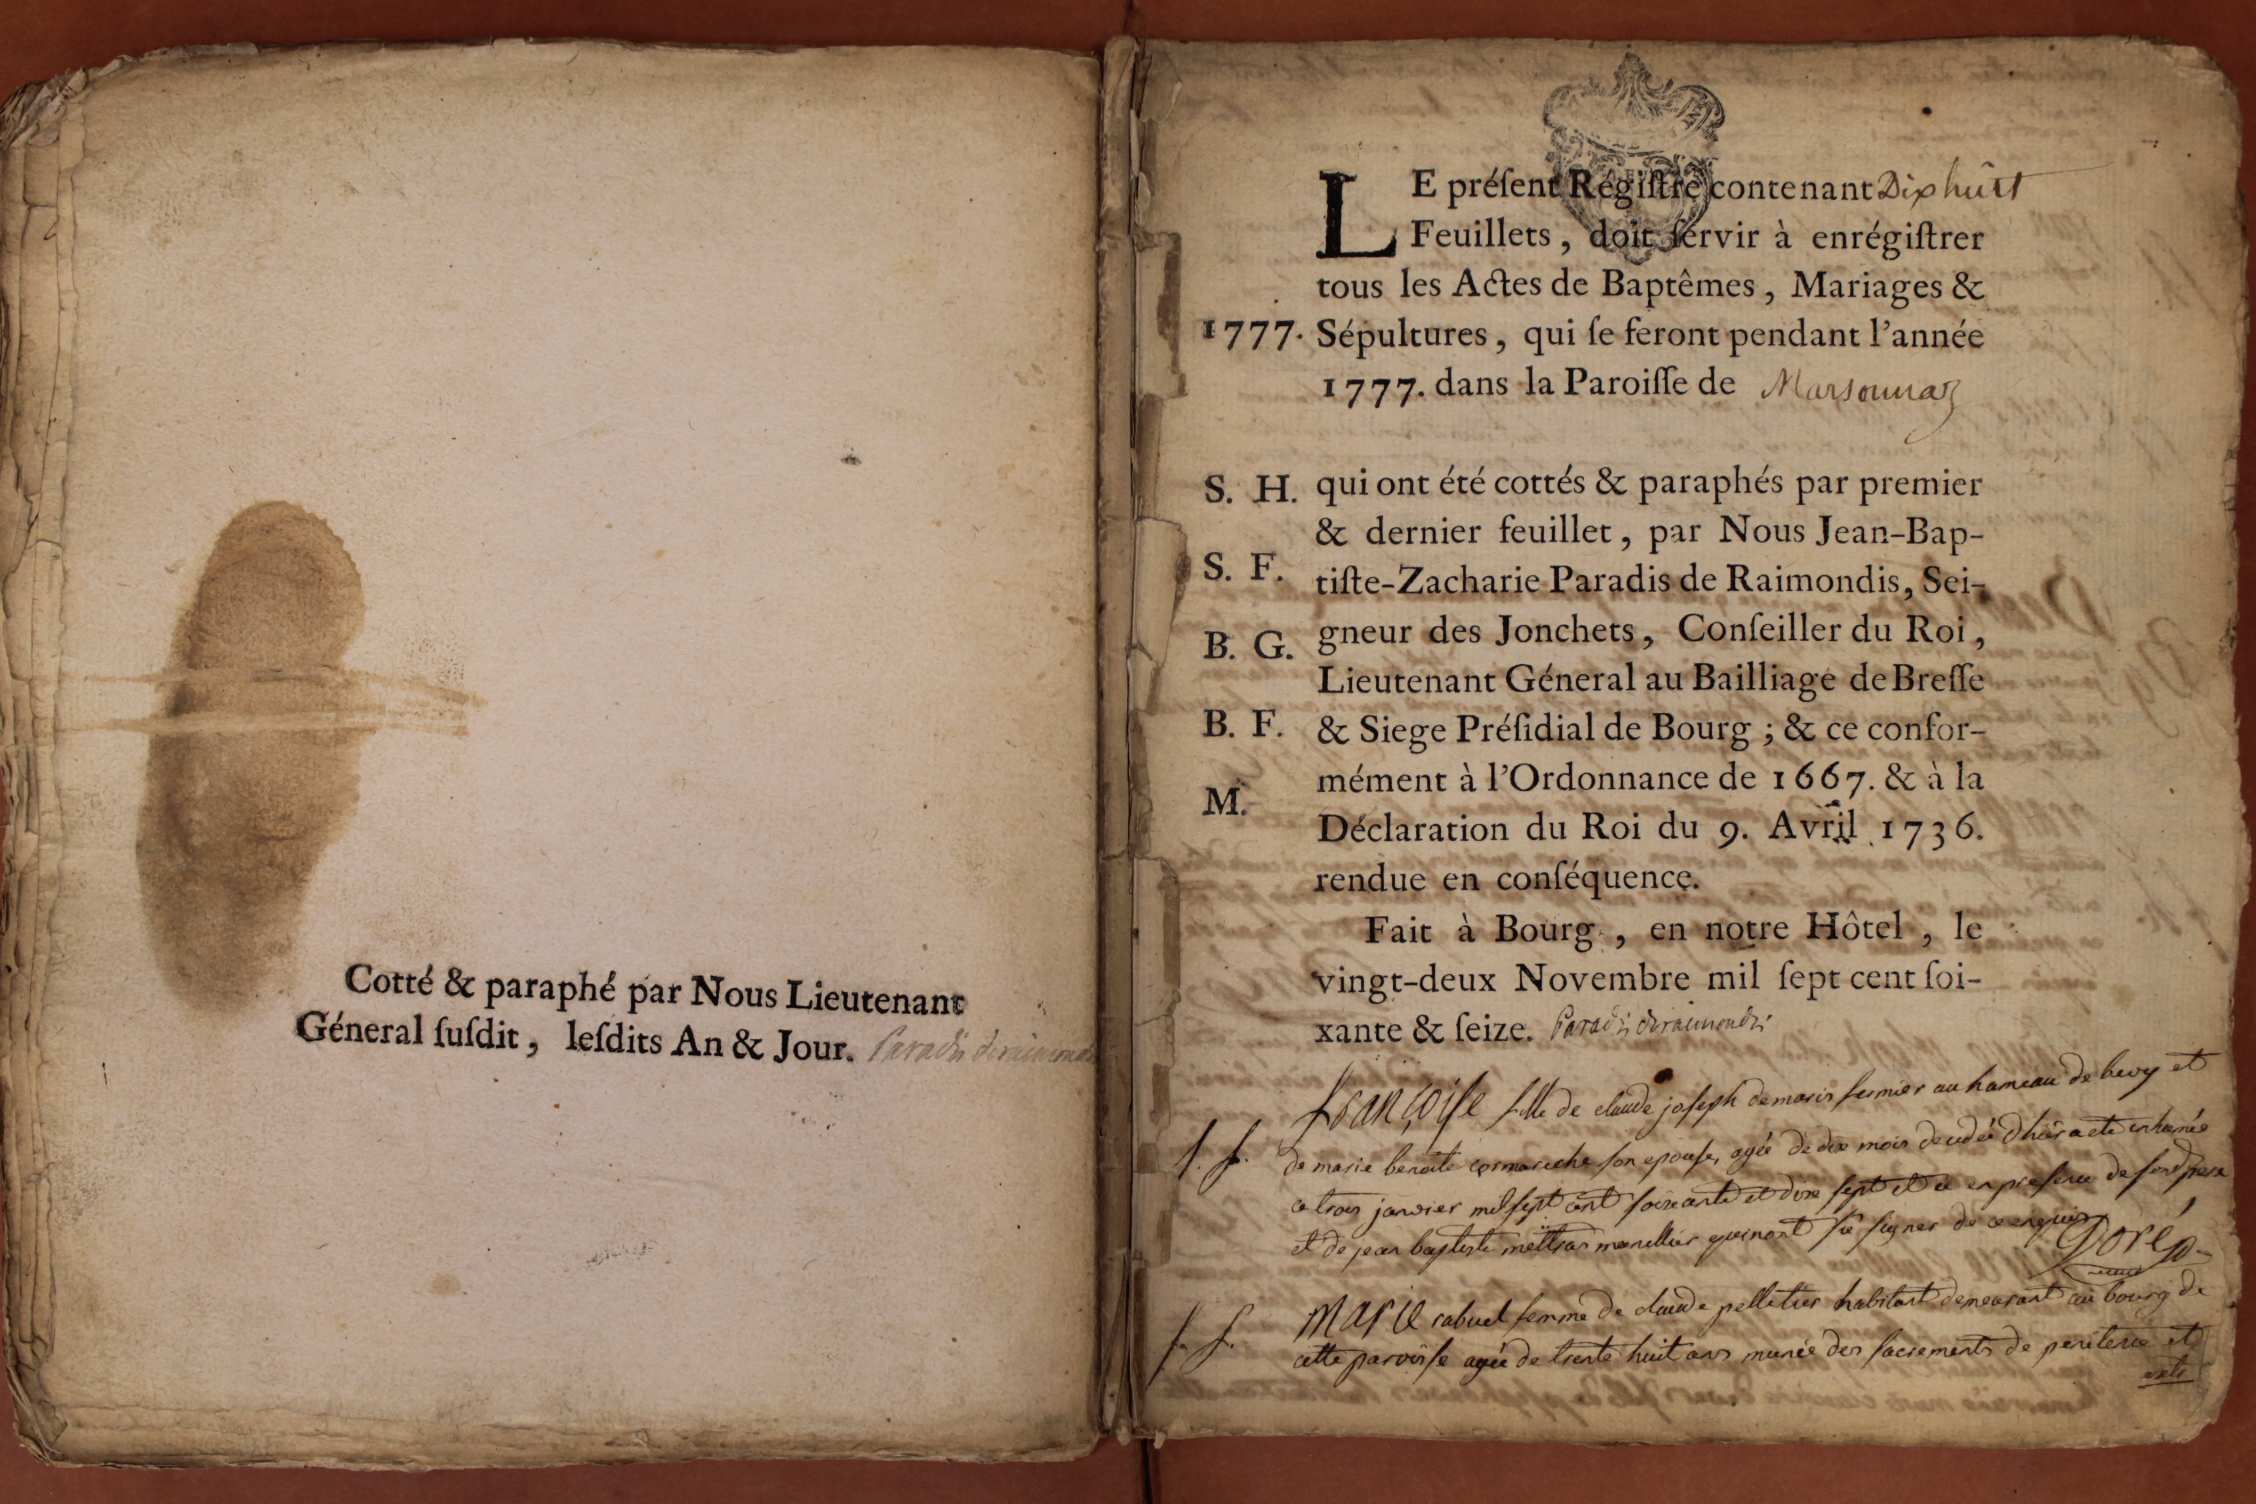 Cotté & paraphé par Nous Lieutenant
Géneral ſuſdit, leſdits An & Jour. Paradis deraimondis
LE préſent Régiſtre contenant Dix huit
Feuillets, doit ſervir à enrégiſtrer
tous les Actes de Baptêmes, Mariages &
1777. Sépultures, qui ſe feront pendant l'année
1777. dans la Paroiſſe de Marsonnaz
S. H. qui ont été cottés & paraphés par premier
& dernier feuillet, par Nous Jean-Bap-
S. F. tiſte-Zacharie Paradis de Raimondis, Sei-
B. G. gneur des Jonchets, Conſeiller du Roi,
Lieutenant Géneral au Bailliage de Breſſe
B. F. & Siege Préſidial de Bourg ; & ce confor-
mément à l'Ordonnance de 1667. & à la
M. Déclaration du Roi du 9. Avril 1736.
rendue en conſéquence.
Fait à Bourg, en notre Hôtel, le
vingt-deux Novembre mil ſept cent ſoi-
xante & ſeize. Paradis deraimondis
françoiſe fille de claude joſeph demaris fermier au hameau de bevy et
S. f. de marie benoite cormareche ſon epouſe, agée de dix mois decedée d'hier a eté inhumée
ce trois janvier mil ſept cent ſoixante et dix ſept et ce en preſence de ſond pere
et de jean baptiste mettras marellier qui n'ont ſû ſigner de ce enquis Doré
S. f. Marie rabuel femme de claude pelletier habitant demeurant au bourg de
cette paroiſſe agée de trente huit ans munie des ſacrements de penitence et